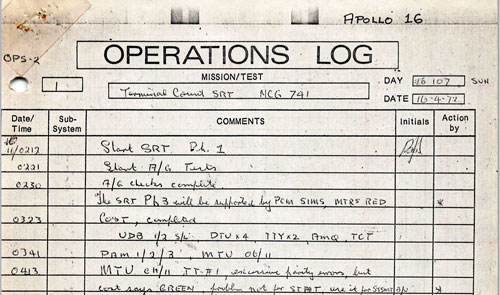 APOLLO 16
OPS-2
OPERATIONS LOG
MISSION/TEST
1
Terminal Count SRT NCG 741
DAY 107 SUN
DATE 16-4-72
Date/Time Sub-System COMMENTS Initials Action by
0212 Start SRT Ph. 1
0221 Start A/G Tests
0230 A/G checks complete
The SRT Ph3 will be supported by PCM SIMS, MTRS RED *
0323 CosT, completed
UDB 1/2 DTU x4, TTY x2, AMQ, TCT
0341 PAM 1/2/3, MTU 06/11
0413 MTU 011/11 TT-#1, excessive parity errors, but
cost says GREEN problem not for START, use it for